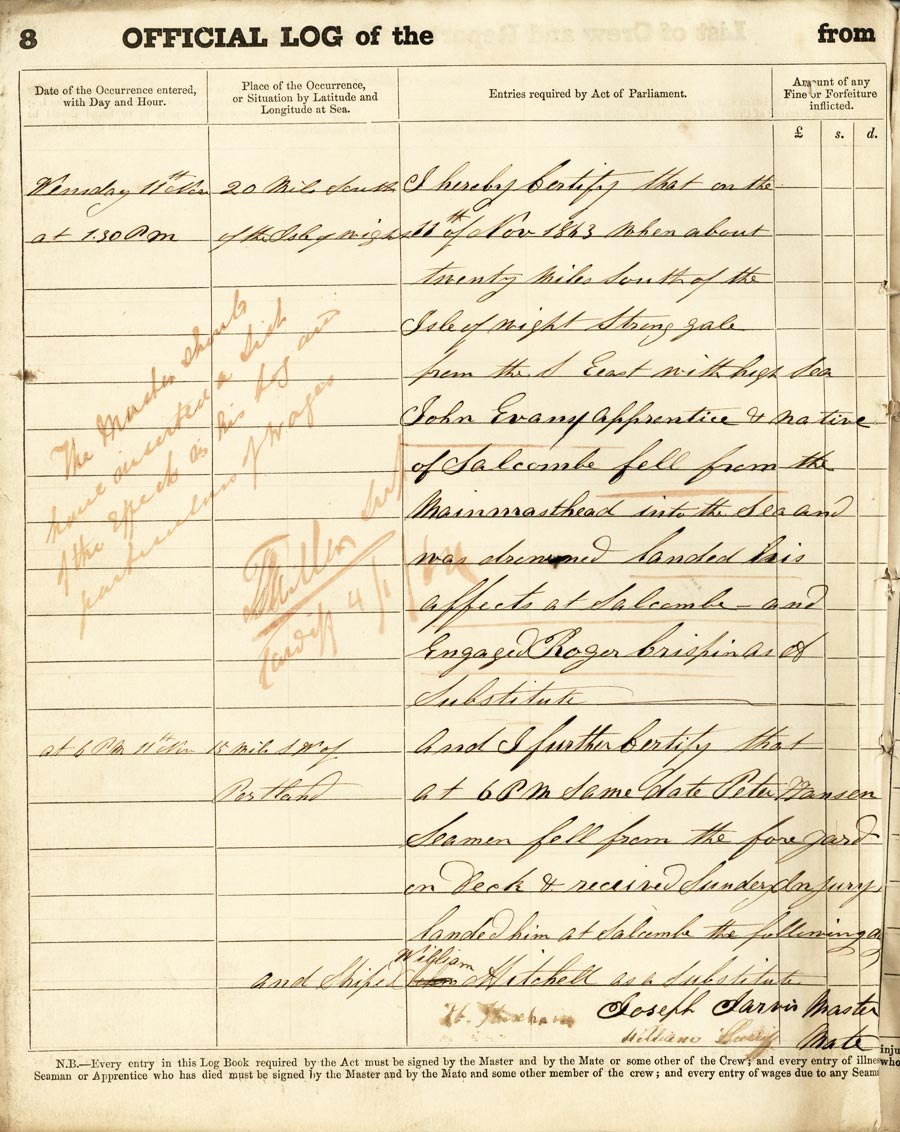 8 OFFICIAL LOG of the from
Date of the Occurrence entered, with Day and Hour.
Place of the Occurrence, or Situation by Latitude and Longitude at Sea.
Entries required by Act of Parliament.
Amount of any Fine or Forfeiture inflicted.
£ s. d.
Wensday 11th Nov 20 Mile South I hereby Certify that on the
at 1.30 P m of the Isle of Wight 11th of Nov 1863 When about
twenty Miles South of the
Isle of Wight Strong gale
from the S Eeast with high Sea
John Evany apprentice & native
of Salcombe fell from the
Mainmasthead into the Sea and
was drowned landed his
affects at Salcombe – and
Engaged Roger Crispin as A
Substitute
The Master should
have inserted a list
of the effects in his Log and
particulars of Wages
Cardiff 4/1/64
at 6 P M 11th Nov 15 Mile S W of and I further Certify that
Portland at 6 P M Same date Peter Hansen
Seamen fell from the fore yard
on Deck & received Sundery Injury
landed him at Salcombe the following
and Ship'd William Mitchell as a Substitute
Joseph Jarvis Master
William Mate
N.B.—Every entry in this Log Book required by the Act must be signed by the Master and by the Mate or some other of the Crew; and every entry of illnes
Seaman or Apprentice who has died must be signed by the Master and by the Mate and some other member of the crew; and every entry of wages due to any Seama
inju
who